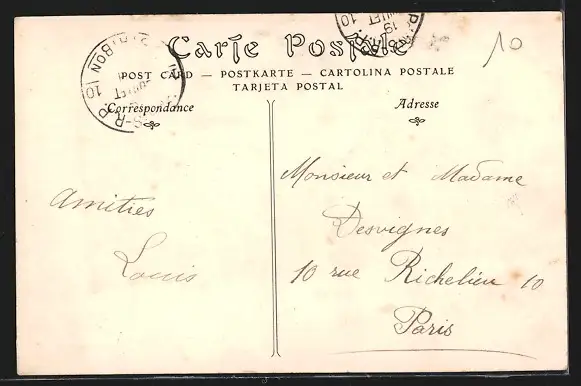 Carte Postale
POST CARD — POSTKARTE — CARTOLINA POSTALE
TARJETA POSTAL
Correspondance
Adresse
10
Amitiés
Louis
Monsieur et Madame
Desvignes
10 rue Richelieu 10
Paris